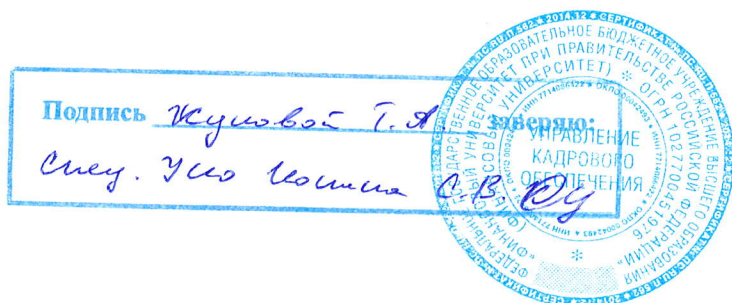 Подпись Жуковой Т.А. заверяю:
Спец. УКО С.В.
УПРАВЛЕНИЕ
КАДРОВОГО
ОБЕСПЕЧЕНИЯ
ФЕДЕРАЛЬНОЕ ГОСУДАРСТВЕННОЕ ОБРАЗОВАТЕЛЬНОЕ БЮДЖЕТНОЕ УЧРЕЖДЕНИЕ ВЫСШЕГО ОБРАЗОВАНИЯ
«ФИНАНСОВЫЙ УНИВЕРСИТЕТ ПРИ ПРАВИТЕЛЬСТВЕ РОССИЙСКОЙ ФЕДЕРАЦИИ»
(ФИНАНСОВЫЙ УНИВЕРСИТЕТ) * ОГРН 1027700451976 *